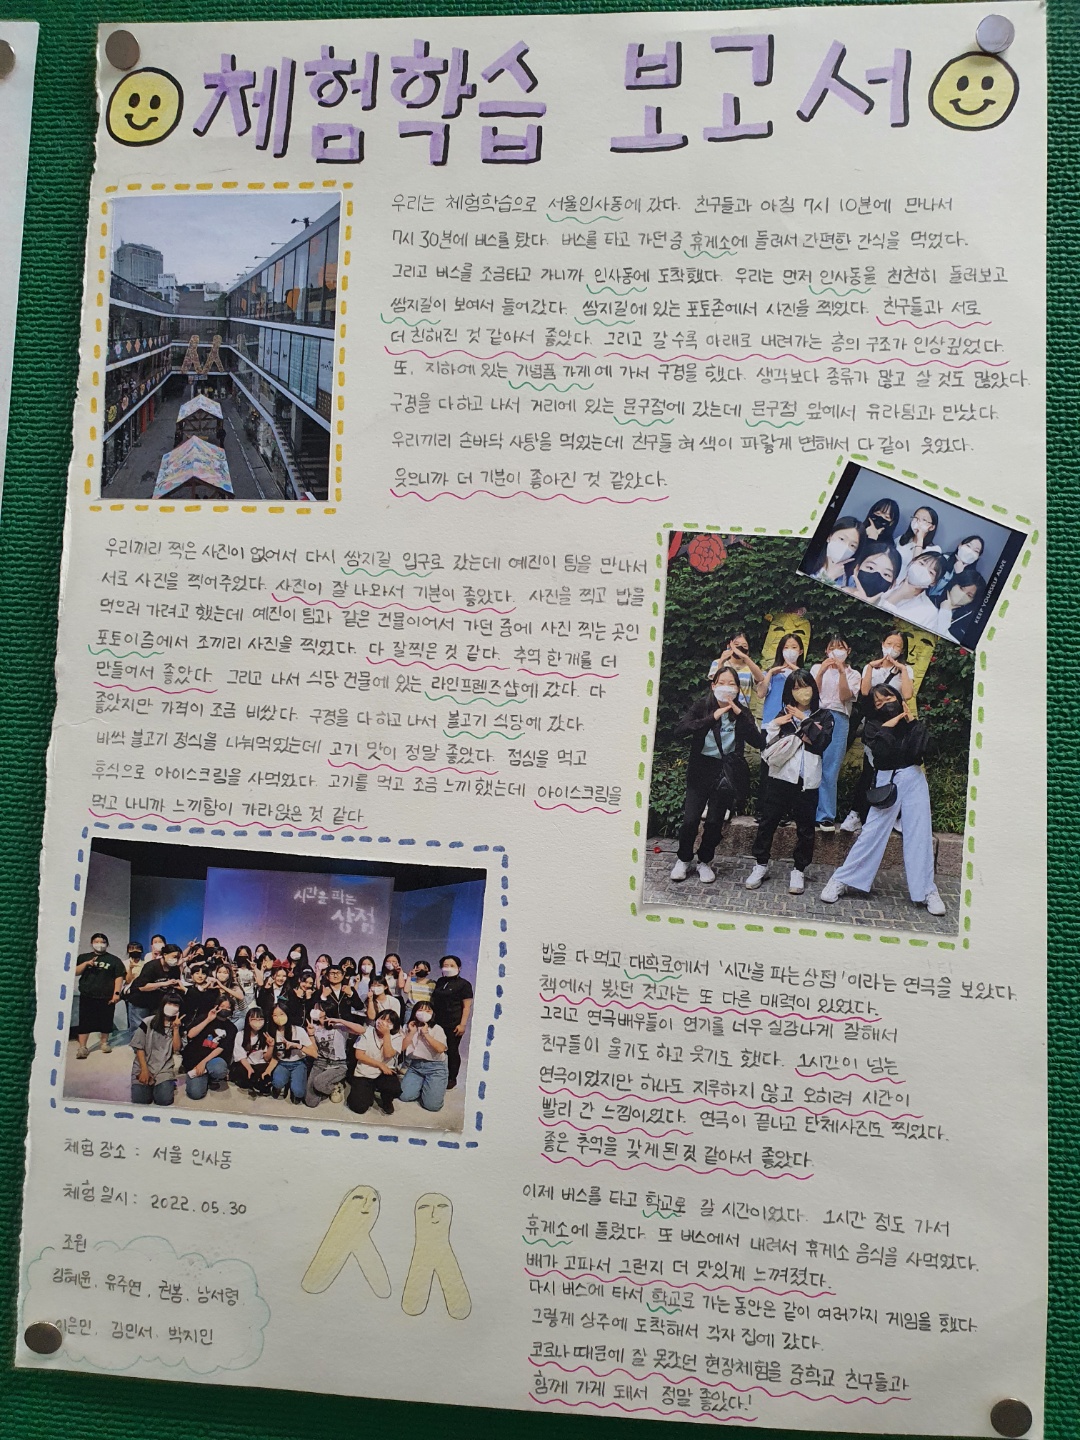 체험학습 보고서
우리는 체험학습으로 서울인사동에 갔다. 친구들과 아침 7시 10분에 만나서
7시 30분에 버스를 탔다. 버스를 타고 가던 중 휴게소에 들려서 간편한 간식을 먹었다.
그리고 버스를 조금타고 가니까 인사동에 도착했다. 우리는 먼저 인사동을 천천히 둘러보고
쌈지길이 보여서 들어갔다. 쌈지길에 있는 포토존에서 사진을 찍었다. 친구들과 서로
더 친해진 것 같아서 좋았다. 그리고 갈 수록 아래로 내려가는 층의 구조가 인상깊었다.
또, 지하에 있는 기념품 가게에 가서 구경을 했다. 생각보다 종류가 많고 살 것도 많았다.
구경을 다하고 나서 거리에 있는 문구점에 갔는데 문구점 앞에서 유라팀과 만났다.
우리끼리 손바닥 사탕을 먹었는데 친구들 혀 색이 파랗게 변해서 다 같이 웃었다.
웃으니까 더 기분이 좋아진 것 같았다.
우리끼리 찍은 사진이 없어서 다시 쌈지길 입구로 갔는데 예진이 팀을 만나서
서로 사진을 찍어주었다. 사진이 잘 나와서 기분이 좋았다. 사진을 찍고 밥을
먹으러 가려고 했는데 예진이 팀과 같은 건물이어서 가던 중에 사진 찍는 곳인
포토이즘에서 조끼리 사진을 찍었다. 다 잘찍은 것 같다. 추억 한개를 더
만들어서 좋았다. 그리고 나서 식당 건물에 있는 라인프렌즈샵에 갔다. 다
좋았지만 가격이 조금 비쌌다. 구경을 다 하고 나서 불고기 식당에 갔다.
바싹 불고기 정식을 나눠먹었는데 고기 맛이 정말 좋았다. 점심을 먹고
후식으로 아이스크림을 사먹었다. 고기를 먹고 조금 느끼했는데 아이스크림을
먹고 나니까 느끼함이 가라앉은 것 같다.
KEEP YOURSELF ALIVE
시간을 파는
상점
밥을 다 먹고 대학로에서 '시간을 파는 상점'이라는 연극을 보았다.
책에서 봤던 것과는 또 다른 매력이 있었다.
그리고 연극배우들이 연기를 너무 실감나게 잘해서
친구들이 울기도 하고 웃기도 했다. 1시간이 넘는
연극이었지만 하나도 지루하지 않고 오히려 시간이
빨리 간 느낌이었다. 연극이 끝나고 단체사진도 찍었다.
좋은 추억을 갖게 된 것 같아서 좋았다.
이제 버스를 타고 학교로 갈 시간이었다. 1시간 정도 가서
휴게소에 들렀다. 또 버스에서 내려서 휴게소 음식을 사먹었다.
배가 고파서 그런지 더 맛있게 느껴졌다.
다시 버스에 타서 학교로 가는 동안은 같이 여러가지 게임을 했다.
그렇게 상주에 도착해서 각자 집에 갔다.
코로나 때문에 잘 못갔던 현장체험을 중학교 친구들과
함께 가게 돼서 정말 좋았다!
체험 장소 : 서울 인사동
체험 일시 : 2022.05.30
조원
김혜윤, 유주연, 권봄, 남서령
이은민, 김민서, 박지민